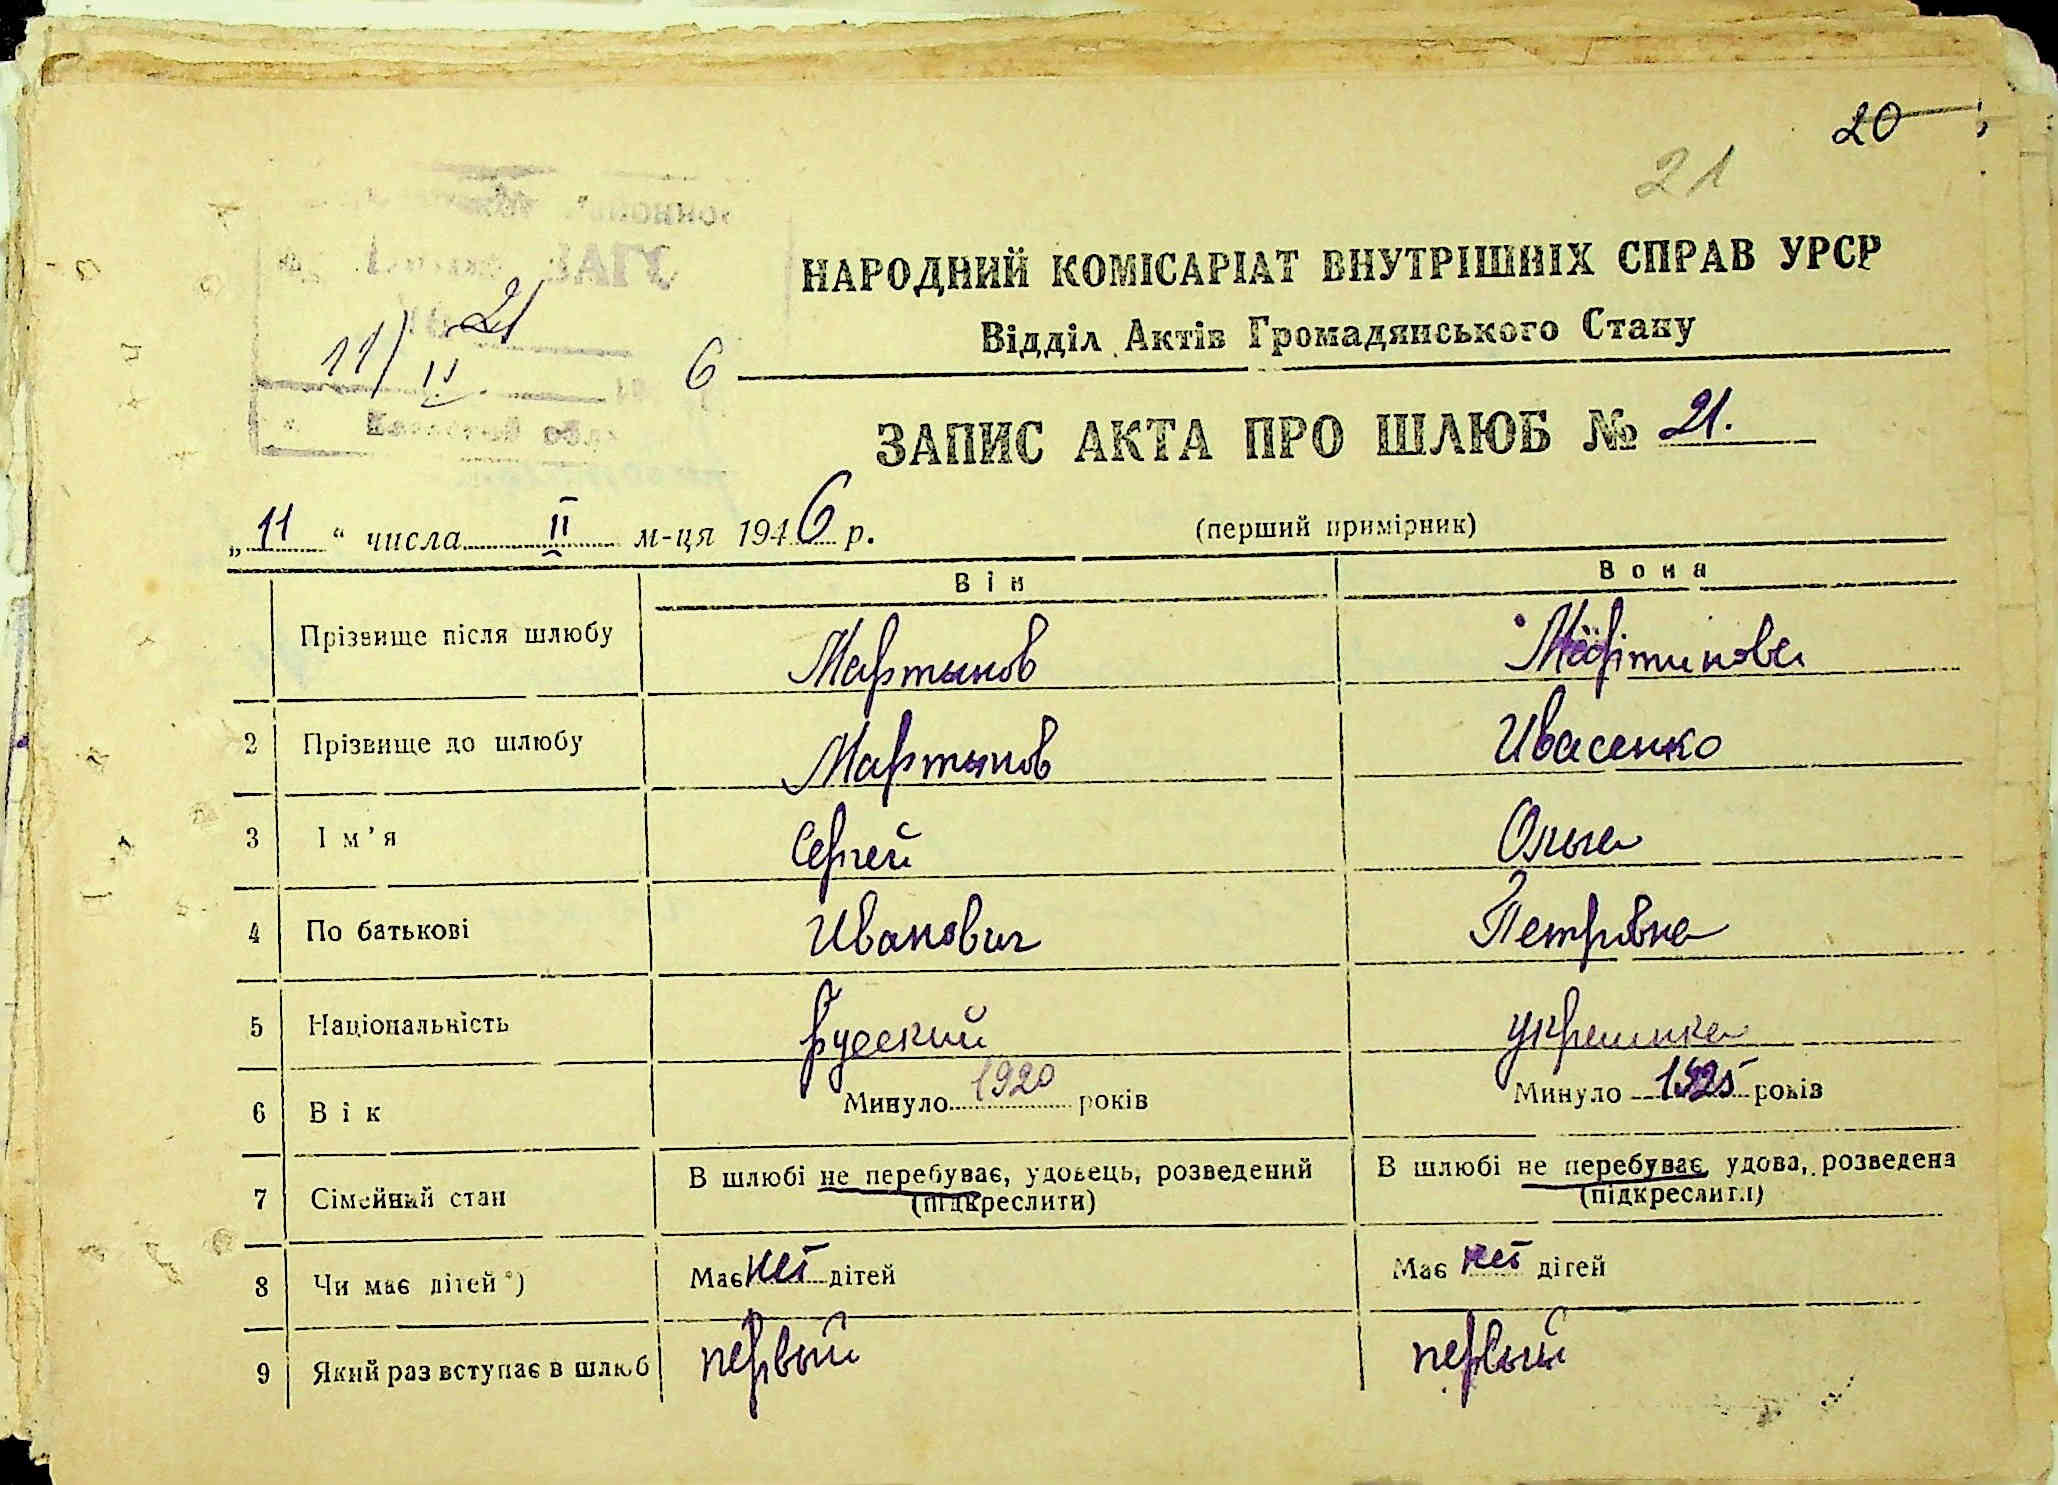 20
21
НАРОДНИЙ КОМІСАРІАТ ВНУТРІШНІХ СПРАВ УРСР
Відділ Актів Громадянського Стану
21
11/II 6
ЗАПИС АКТА ПРО ШЛЮБ № 21.
„11“ числа II м-ця 1946 р. (перший примірник)
Він Вона
Прізвище після шлюбу Мартынов Мартинова
2 Прізвище до шлюбу Мартынов Ивасенко
3 Ім’я Сергей Ольга
4 По батькові Иванович Петрівна
5 Національність Русский украинка
6 Вік Минуло 1920 років Минуло 1925 років
7 Сімейний стан В шлюбі не перебуває, удовець, розведений В шлюбі не перебуває, удова, розведена
(підкреслити) (підкреслити)
8 Чи має дітей*) Має нет дітей Має нет дітей
9 Який раз вступає в шлюб первый первый